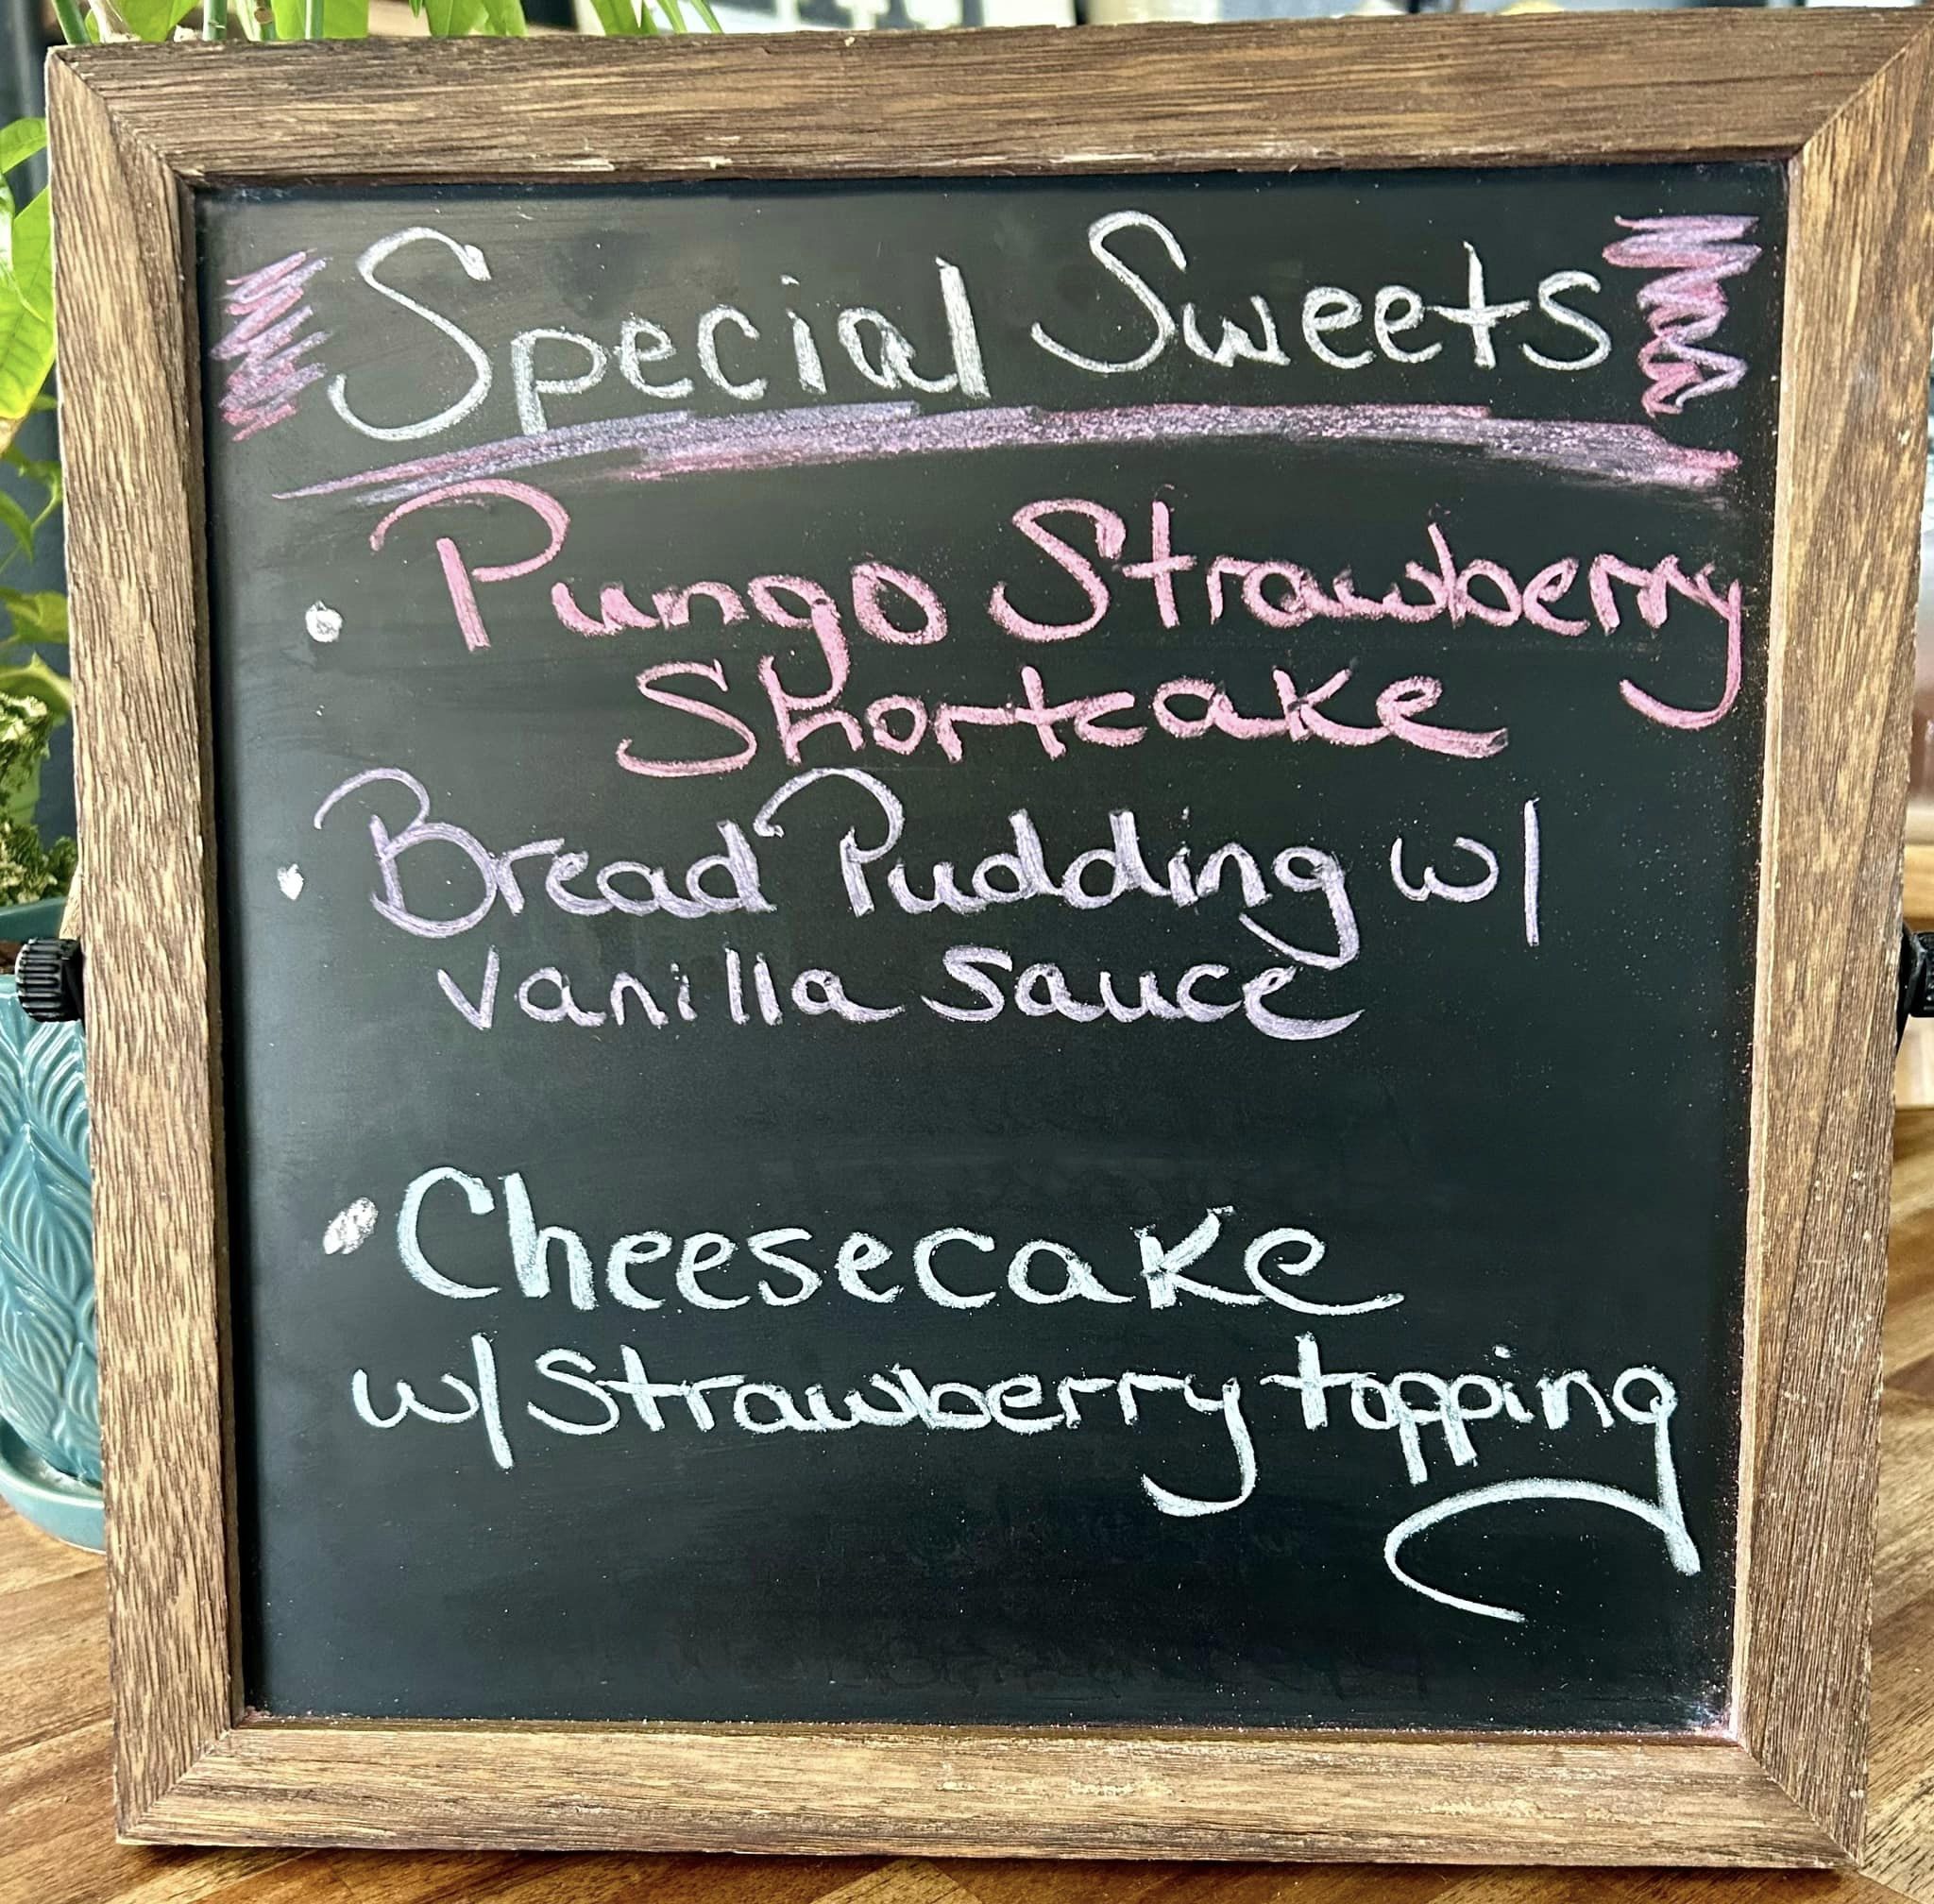 Special Sweets
• Pungo Strawberry
Shortcake
• Bread Pudding w/
Vanilla Sauce
• Cheesecake
w/ Strawberry topping